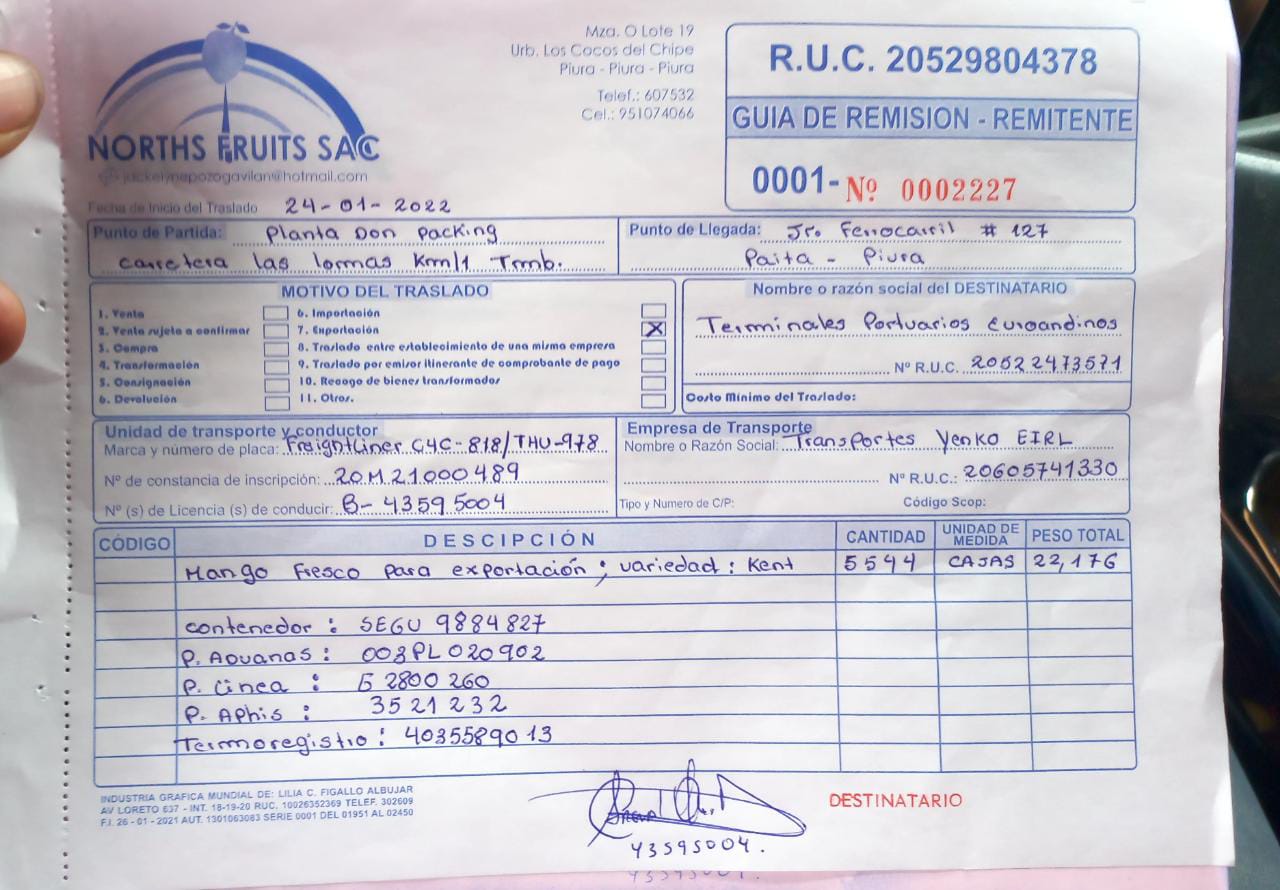 NORTHS FRUITS SAC
jackelynepozogavilan@hotmail.com
Mza. O Lote 19
Urb. Los Cocos del Chipe
Piura - Piura - Piura
Telef.: 607532
Cel.: 951074066
R.U.C. 20529804378
GUIA DE REMISION - REMITENTE
0001- Nº 0002227
Fecha de Inicio del Traslado 24-01-2022
Punto de Partida: Planta Don Packing
carretera las lomas Km/1 Tmb.
Punto de Llegada: Jr. Ferrocarril # 127
Paita - Piura
MOTIVO DEL TRASLADO
1. Venta
2. Venta sujeta a confirmar
3. Compra
4. Transformación
5. Consignación
6. Devolución
6. Importación
7. Exportación X
8. Traslado entre establecimiento de una misma empresa
9. Traslado por emisor itinerante de comprobante de pago
10. Recogo de bienes transformados
11. Otros.
Nombre o razón social del DESTINATARIO
Terminales Portuarios Euroandinos
Nº R.U.C. 20522473571
Costo Mínimo del Traslado:
Unidad de transporte y conductor
Marca y número de placa: FreightLiner C4C-818/THU-978
Nº de constancia de inscripción: 20M21000489
Nº (s) de Licencia (s) de conducir: B-43595004
Empresa de Transporte
Nombre o Razón Social: Transportes Yenko EIRL
Nº R.U.C.: 20605741330
Tipo y Numero de C/P: Código Scop:
CÓDIGO DESCIPCIÓN CANTIDAD UNIDAD DE MEDIDA PESO TOTAL
Mango Fresco para exportación ; variedad : Kent 5544 CAJAS 22,176
contenedor : SEGU 9884827
P. Aduanas : 003PL020902
P. Linea : E2800260
P. Aphis : 3521232
Termoregistro : 4035589013
INDUSTRIA GRAFICA MUNDIAL DE: LILIA C. FIGALLO ALBUJAR
AV LORETO 637 - INT. 18-19-20 RUC. 10026352369 TELEF. 302609
F.I. 26 - 01 - 2021 AUT. 1301063083 SERIE 0001 DEL 01951 AL 02450
43595004.
DESTINATARIO